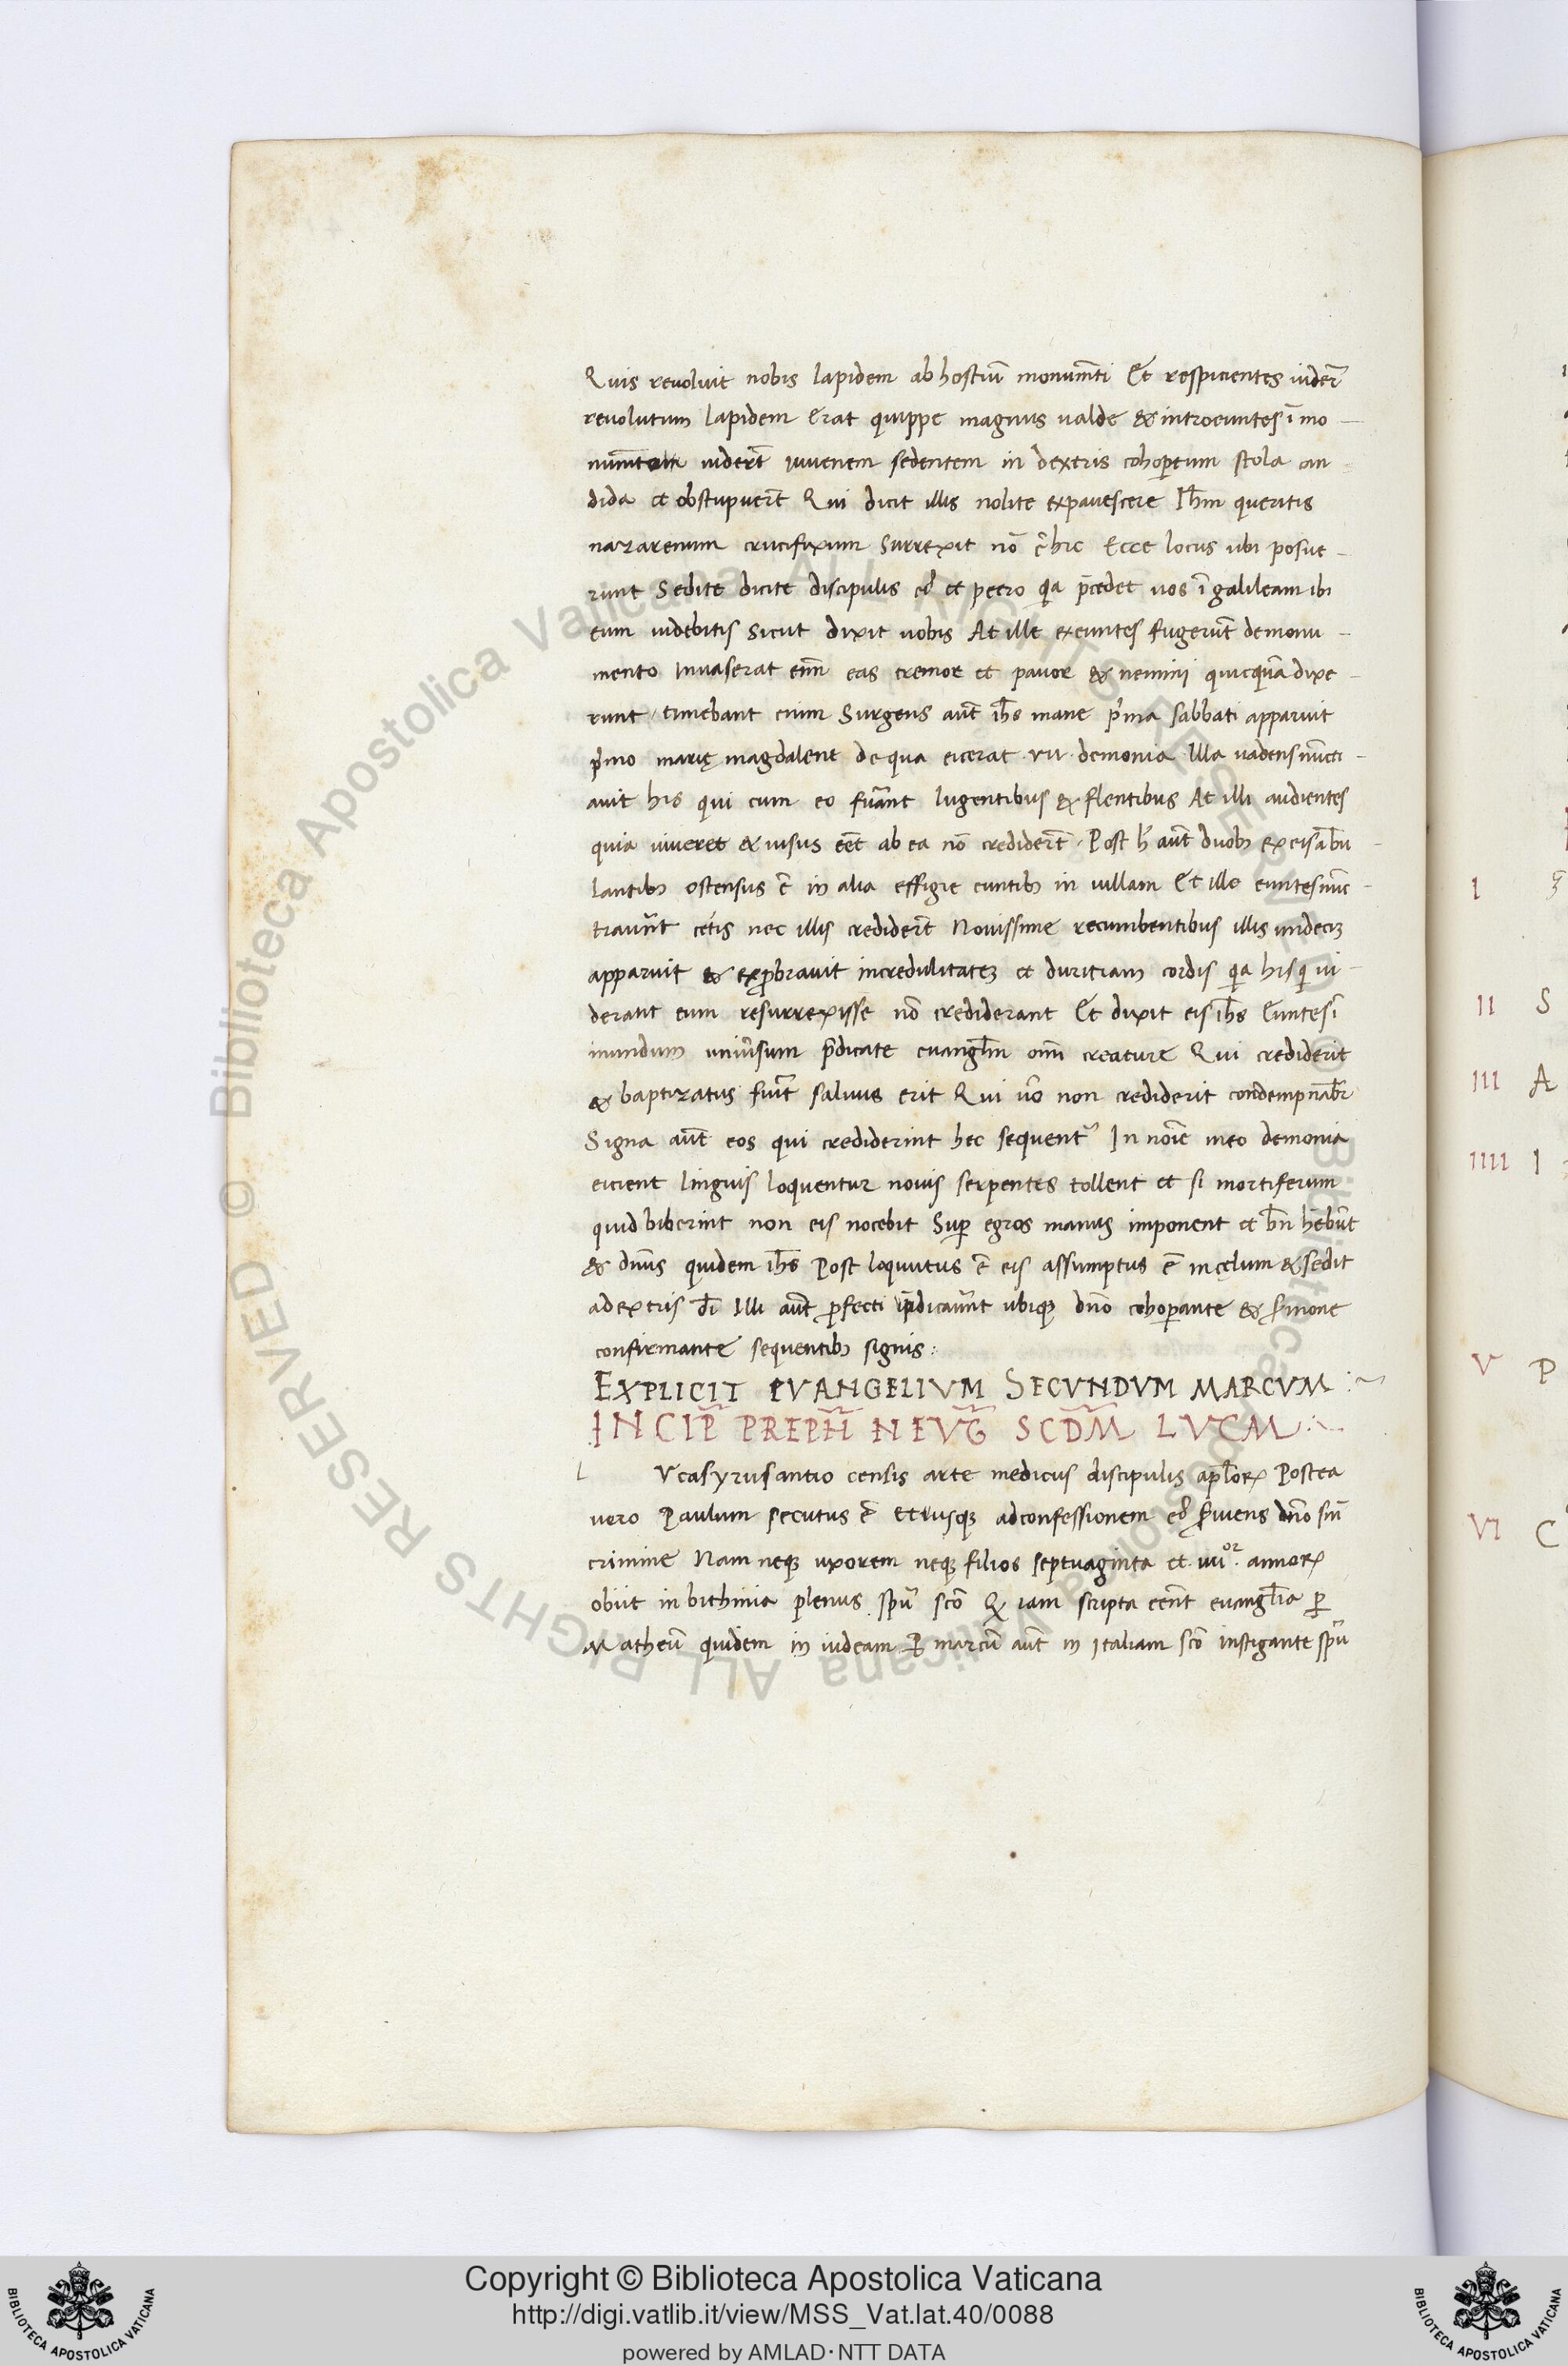 Quis revoluit nobis lapidem ab hostiū monum̄ti Et respicientes uider̄
revolutum lapidem Erat quippe magnus ualde & introeuntes ī mo
num̄tom uider̄t iuvenem sedentem in dexteris cohoꝑtum stola can
dida et obstupuer̄t Qui dicit illis nolite expavescere Ih̄m queritis
nazarenum crucifixum surrexit nō ē hic Ecce locus ubi posue
runt Sedite dicite discipulis ei᷒ et petro q̄a p̄cedet uos ī galileam ibi
eum uidebitis sicut dixit uobis At ille exeuntes fugerūt de monu
mento Invaserat enī eas tremor et pavor & nemini quicquā dixe
runt timebant enim Surgens aūt ih̄s mane p̄ma sabbati apparuit
p̄mo marię magdalene de qua eicerat ·vii· demonia Illa uadens nūcti
auit his qui cum eo fūant lugentibus & flentibus At illi audientes
quia uiveret & uisus eēt ab ea nō credider̄t Post h̄ aūt duobꝫ ex eis ābu
lantibꝫ ostensus ē in alia effigie euntibꝫ in uillam Et ille euntes nūc
tiaūt cet̄is nec illis crediderīt Novissime recumbentibus illis undecīꝫ
apparuit & exꝓbrauit incredulitatēꝫ et duritiam cordis q̄a his q̄ ui
derant eum resurrexisse nō crediderant Et dixit eis ih̄s Euntes ī
mundum univ̄sum p̄dicate evangl̄m om̄i creature Qui crediderit
& baptizatus fuīt saluus erit Qui v̄o non crediderit condempnab̄r
Signa aūt eos qui crediderint hec sequent᷒ In noīe meo demonia
eicient linguis loquentur novis serpentes tollent et si mortiferum
quid biberint non eis nocebit Suꝑ egros manus imponent et bn̄ hēbūt
& dn̄us quidem ih̄s Post loquutus ē eis assumptus ē in cęlum & sedit
ad extris dī Illi aūt ꝓfecti p̄dicaūt ubiqꝫ dn̄o cohoꝑante & s̄mone
confirmante sequentibꝫ signis:
EXPLICIT EVANGELIVM SECVNDVM MARCVM
INCIP̄ PREPH̄ NEVG̅ SCDM̄ LVCM
l Vcas yrus antio censis arte medicus discipulis apl̄oꝝ Postea
vero Paulum secutus ē et usqꝫ ad confessionem ei᷒ s̄viens dn̄o sin̄
crimine Nam neqꝫ uxorem neqꝫ filios septuaginta et iiii or annoꝝ
obiit in bithinia plenus spū scō Qꝫ iam scripta eēnt evangl̄ia ꝑ
Matheū quidem in iudeam ꝑ marcū aūt in Italiam scō instigante spū
I
II S
III A
IIII I
V P
VI C
© Biblioteca Apostolica Vaticana ALL RIGHTS RESERVED © Biblioteca Apostolica Vaticana ALL RIGHTS RESERVED
Copyright © Biblioteca Apostolica Vaticana
http://digi.vatlib.it/view/MSS_Vat.lat.40/0088
powered by AMLAD·NTT DATA
BIBLIOTECA APOSTOLICA VATICANA
BIBLIOTECA APOSTOLICA VATICANA